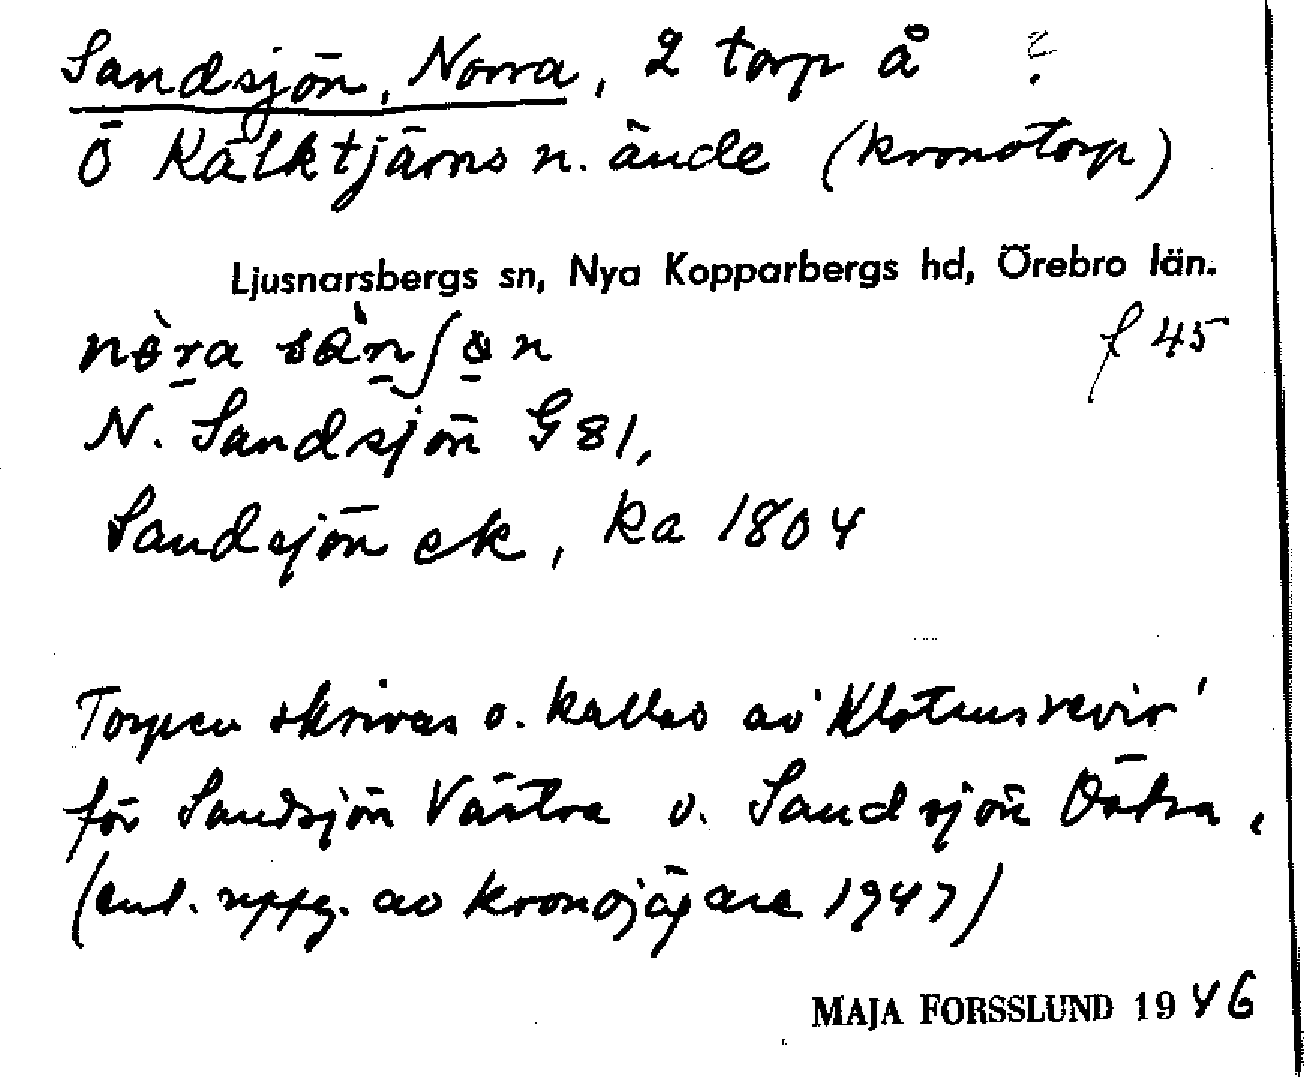 Sandsjön, Norra, 2 torp å ?
Ö Kälktjärns n. ände (kronotorp)
Ljusnarsbergs sn, Nya Kopparbergs hd, Örebro län.
f 45
N. Sandsjön G 81,
Sandsjön ek, ka 1804
Torpen skrivas o. kallas av 'Klotens revir'
för Sandsjön Västra o. Sandsjön Östra,
(enl. uppg. av kronojägare 1947)
MAJA FORSSLUND 1946